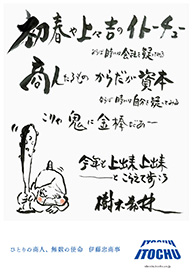 初春や上々吉のイトーチュー
ならば時には会社を疑ってみる
商人たるもの からだが資本
ならば時には自分を疑ってみる
こりゃ鬼に金棒だあー
今年も上出来、上出来
とこうえて歩こう
樹木希林
ひとりの商人、無数の使命 伊藤忠商事
ITOCHU
ITOCHU